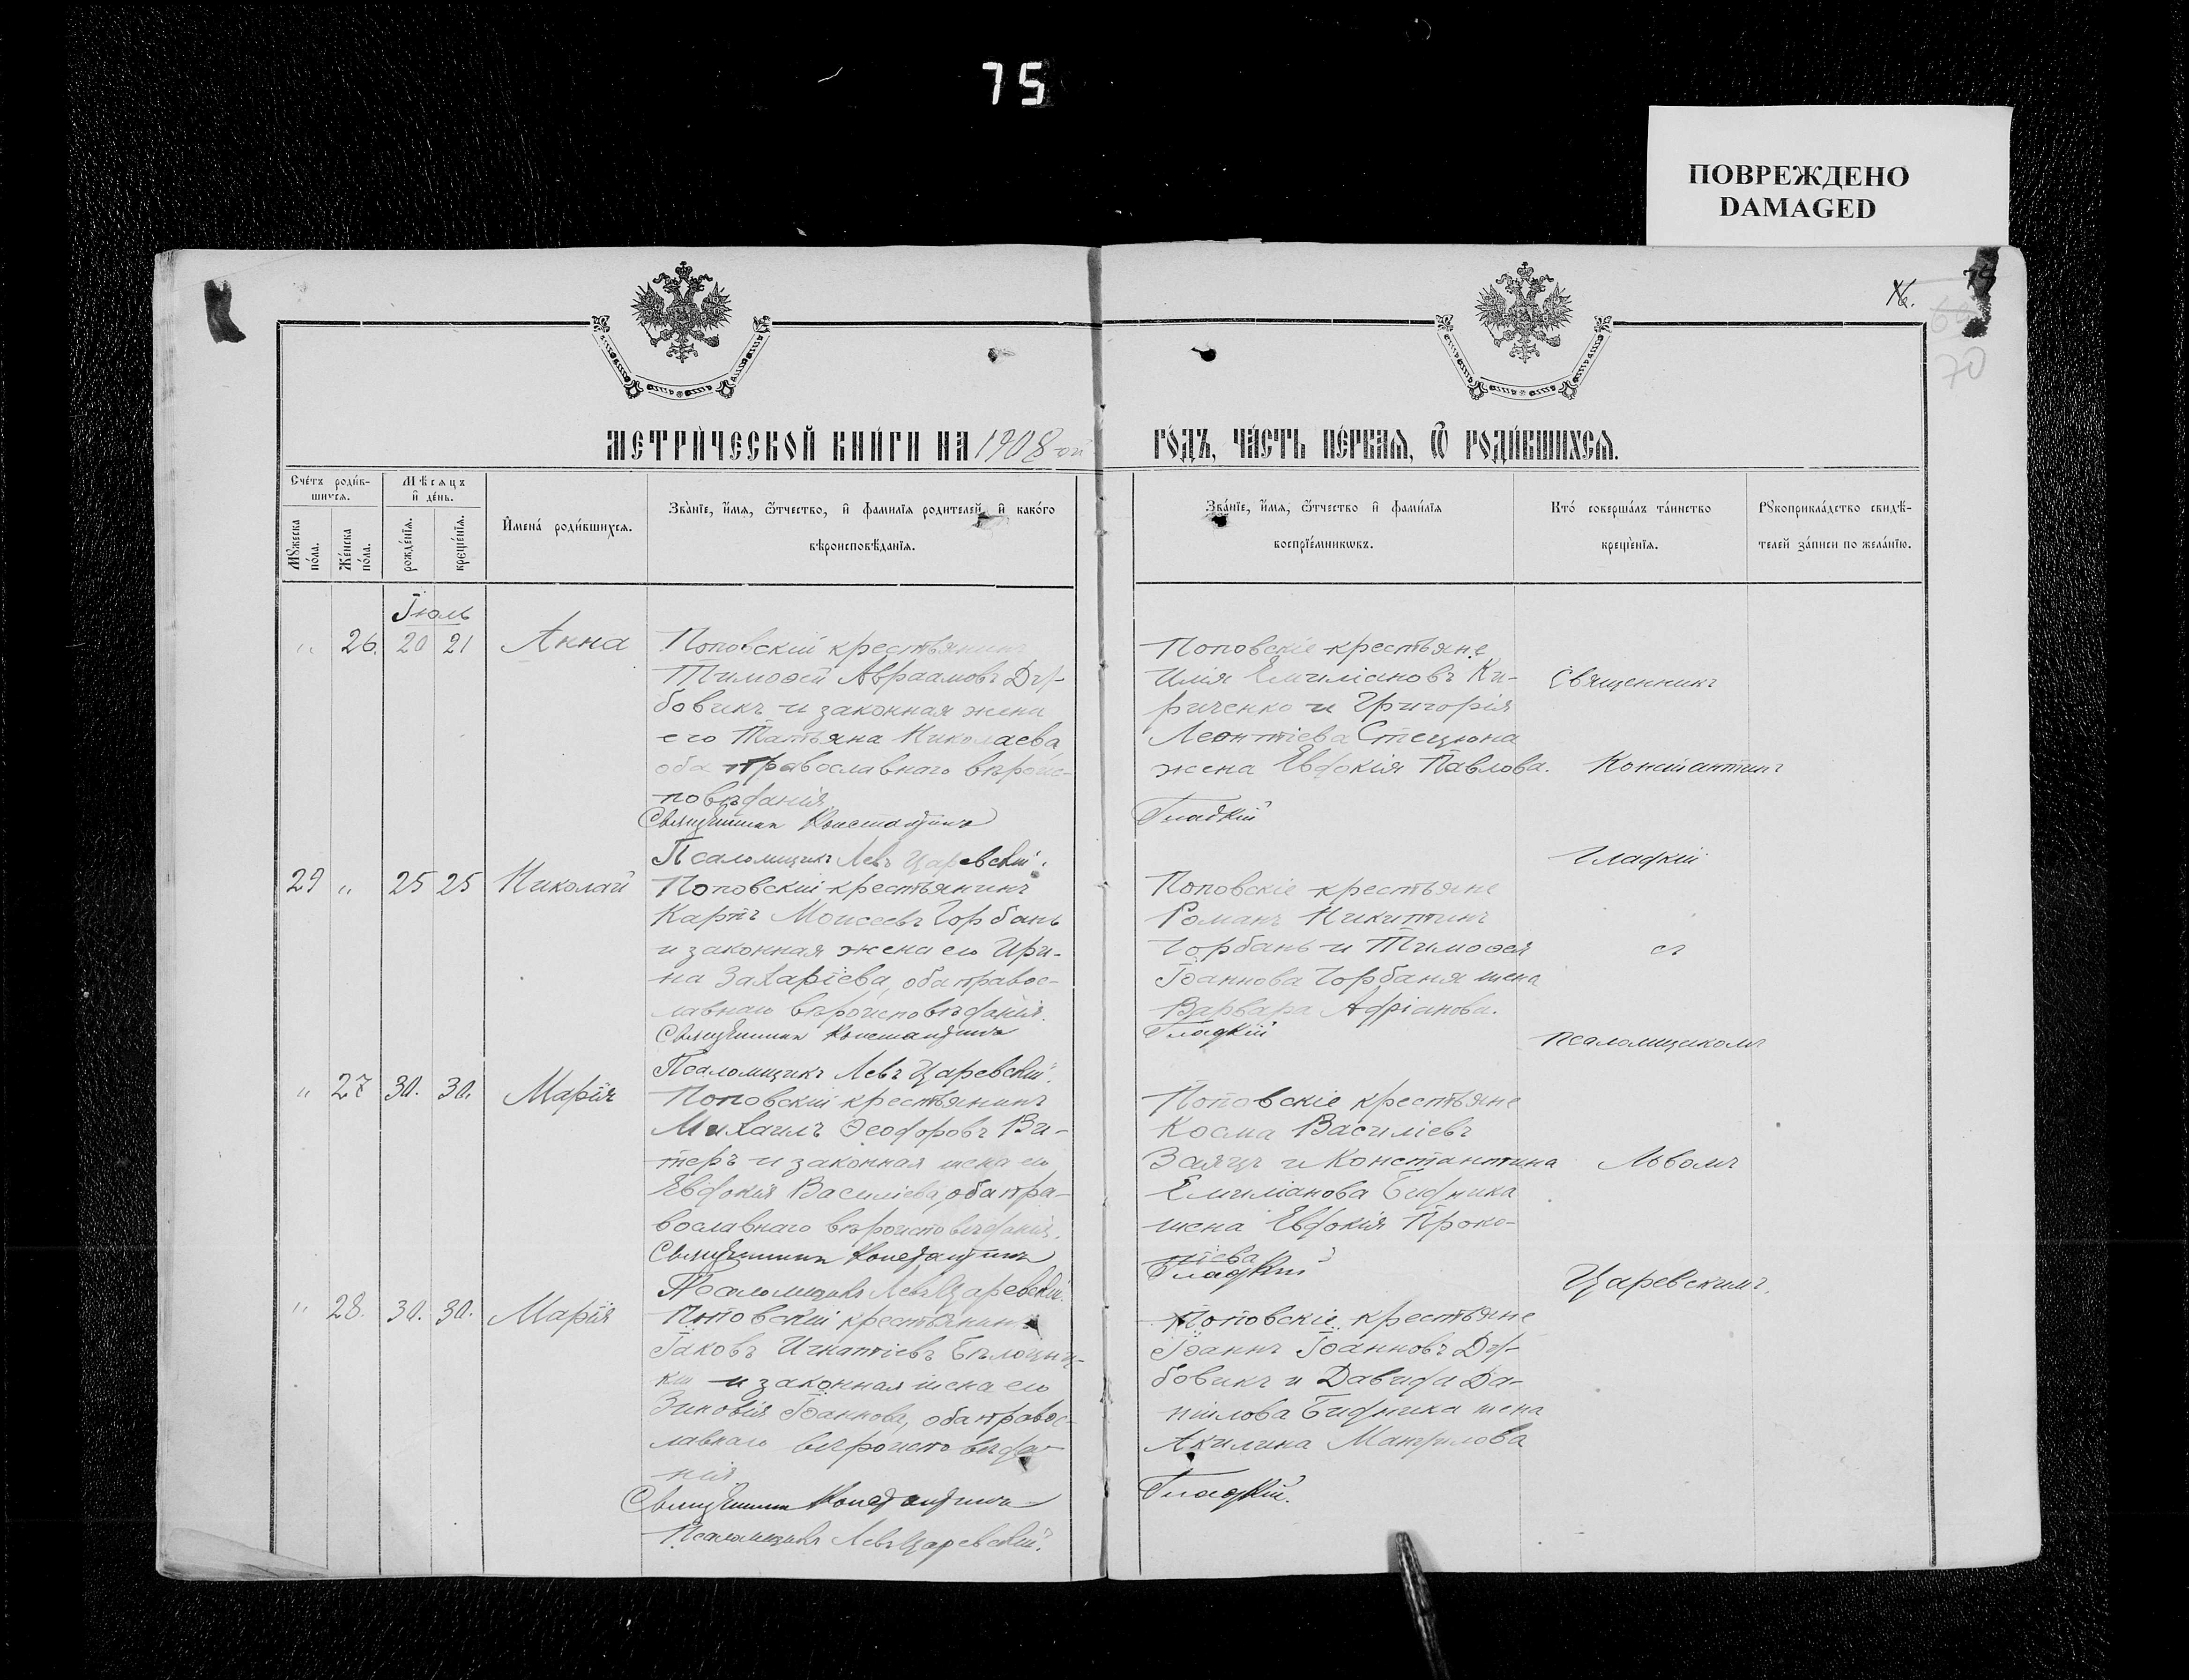 75
ПОВРЕЖДЕНО
DAMAGED
16.
75
70
МЕТРИЧЕСКОЙ КНИГИ НА 1908 ой
ГОДЪ, ЧАСТЬ ПЕРВАЯ, Ѿ РОДИВШИХСЯ.
Счетъ родив-
шихся.
Мужеска пола.
Женска пола.
Мѣсяцъ
и день.
рожденія.
крещенія.
Имена родившихся.
Званіе, имя, ѿтчество, и фамилія родителей, и какого
вѣроисповѣданія.
Званіе, имя, ѿтчество и фамилія
воспріемникωвъ.
Кто совершалъ таинство
крещенія.
Рукоприкладство свидѣ-
телей записи по желанію.
Іюль
" 26. 20 21 Анна
Поповскій крестьянинъ
Тимоѳей Авраамовъ Ду-
бовикъ и законная жена
его Татьяна Николаева,
оба православнаго вѣроис-
повѣданія.
Священникъ Константинъ
Псаломщикъ Левъ Царевскій.
Поповскіе крестьяне
Илія Емиліановъ Ки-
риченко и Григорія
Леонтіева Стецюна
жена Евдокія Павлова.
Гладкій
Священникъ
Константинъ
Гладкій
29 " 25 25 Николай
Поповскій крестьянинъ
Карпъ Моисеевъ Горбань
и законная жена его Ири-
на Захаріева, оба правос-
лавнаго вѣроисповѣданія.
Священникъ Константинъ
Псаломщикъ Левъ Царевскій.
Поповскіе крестьяне
Романъ Никитинъ
Горбань и Тимоѳея
Іоаннова Горбаня жена
Варвара Адріанова.
Гладкій
съ
псаломщикомъ
" 27 30. 30. Марія
Поповскій крестьянинъ
Михаилъ Ѳеодоровъ Ви-
теръ и законная жена его
Евдокія Василіева, оба пра-
вославнаго вѣроисповѣданія.
Священникъ Константинъ
Псаломщикъ Левъ Царевскій.
Поповскіе крестьяне
Косма Василіевъ
Заяцъ и Константина
Емиліанова Бидника
жена Евдокія Проко-
піева
Гладкій
Львомъ
Царевскимъ.
" 28. 30. 30. Марія
Поповскій крестьянинъ
Іаковъ Игнатіевъ
кій и законная жена его
Зиновія Іоаннова, оба правос-
лавнаго вѣроисповѣда-
нія
Священникъ Константинъ
Псаломщикъ Левъ Царевскій.
Поповскіе крестьяне
Іоаннъ Іоанновъ Ду-
бовикъ и Давида Да-
ніилова Бидника жена
Акилина
Гладкій.